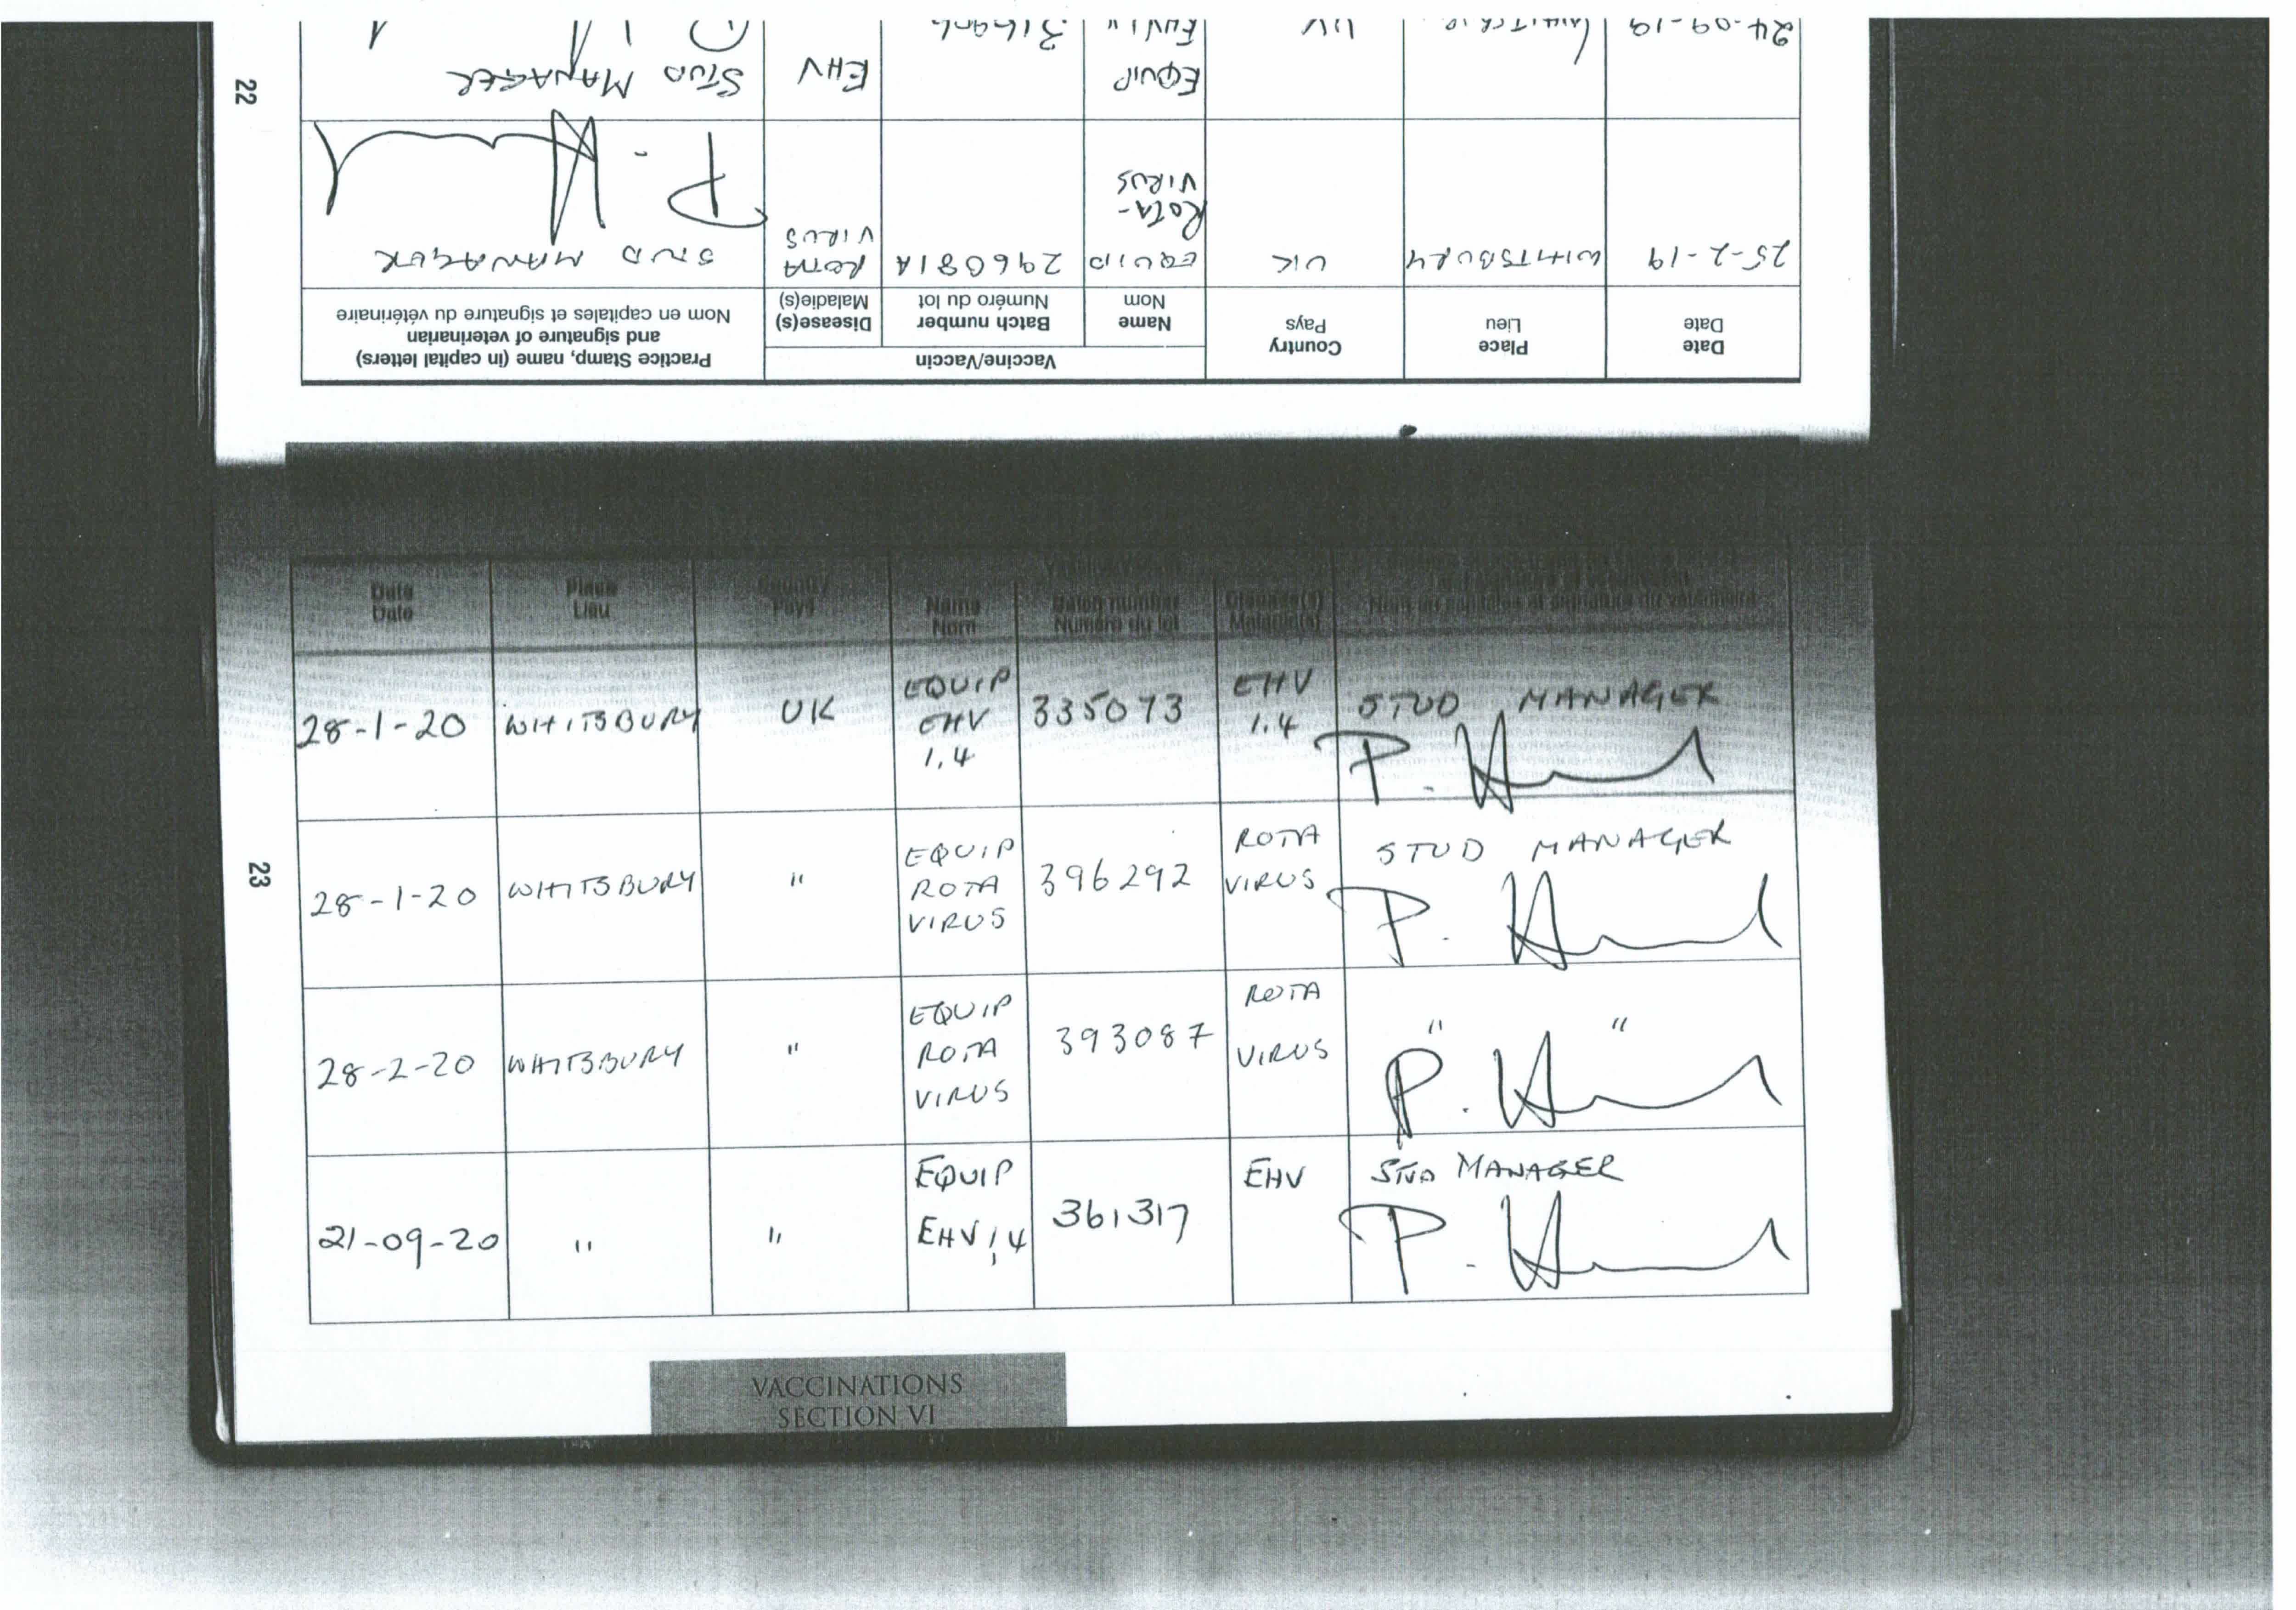 22
Date
Date
Place
Lieu
Country
Pays
Vaccine/Vaccin
Name
Nom
Batch number
Numéro du lot
Disease(s)
Maladie(s)
Practice Stamp, name (in capital letters)
and signature of veterinarian
Nom en capitales et signature du vétérinaire
25-2-19 WHITSBURY UK EQUIP 296081A ROTA STUD MANAGER
ROTA- VIRUS
VIRUS
P.
24-09-19 UK EQUIP EHV STUD MANAGER
23
Date
Date
Place
Lieu
Country
Pays
Name
Nom
Batch number
Numéro du lot
Disease(s)
Maladie(s)
Nom en capitales et signature du vétérinaire
28-1-20 WHITSBURY UK EQUIP 335073 EHV STUD MANAGER
EHV 1.4
1.4
P.
28-1-20 WHITSBURY " EQUIP 396292 ROTA STUD MANAGER
ROTA VIRUS
VIRUS
P.
28-2-20 WHITSBURY " EQUIP 393087 ROTA " "
ROTA VIRUS
VIRUS
P.
21-09-20 " " EQUIP 361317 EHV STUD MANAGER
EHV 1,4
P.
VACCINATIONS
SECTION VI